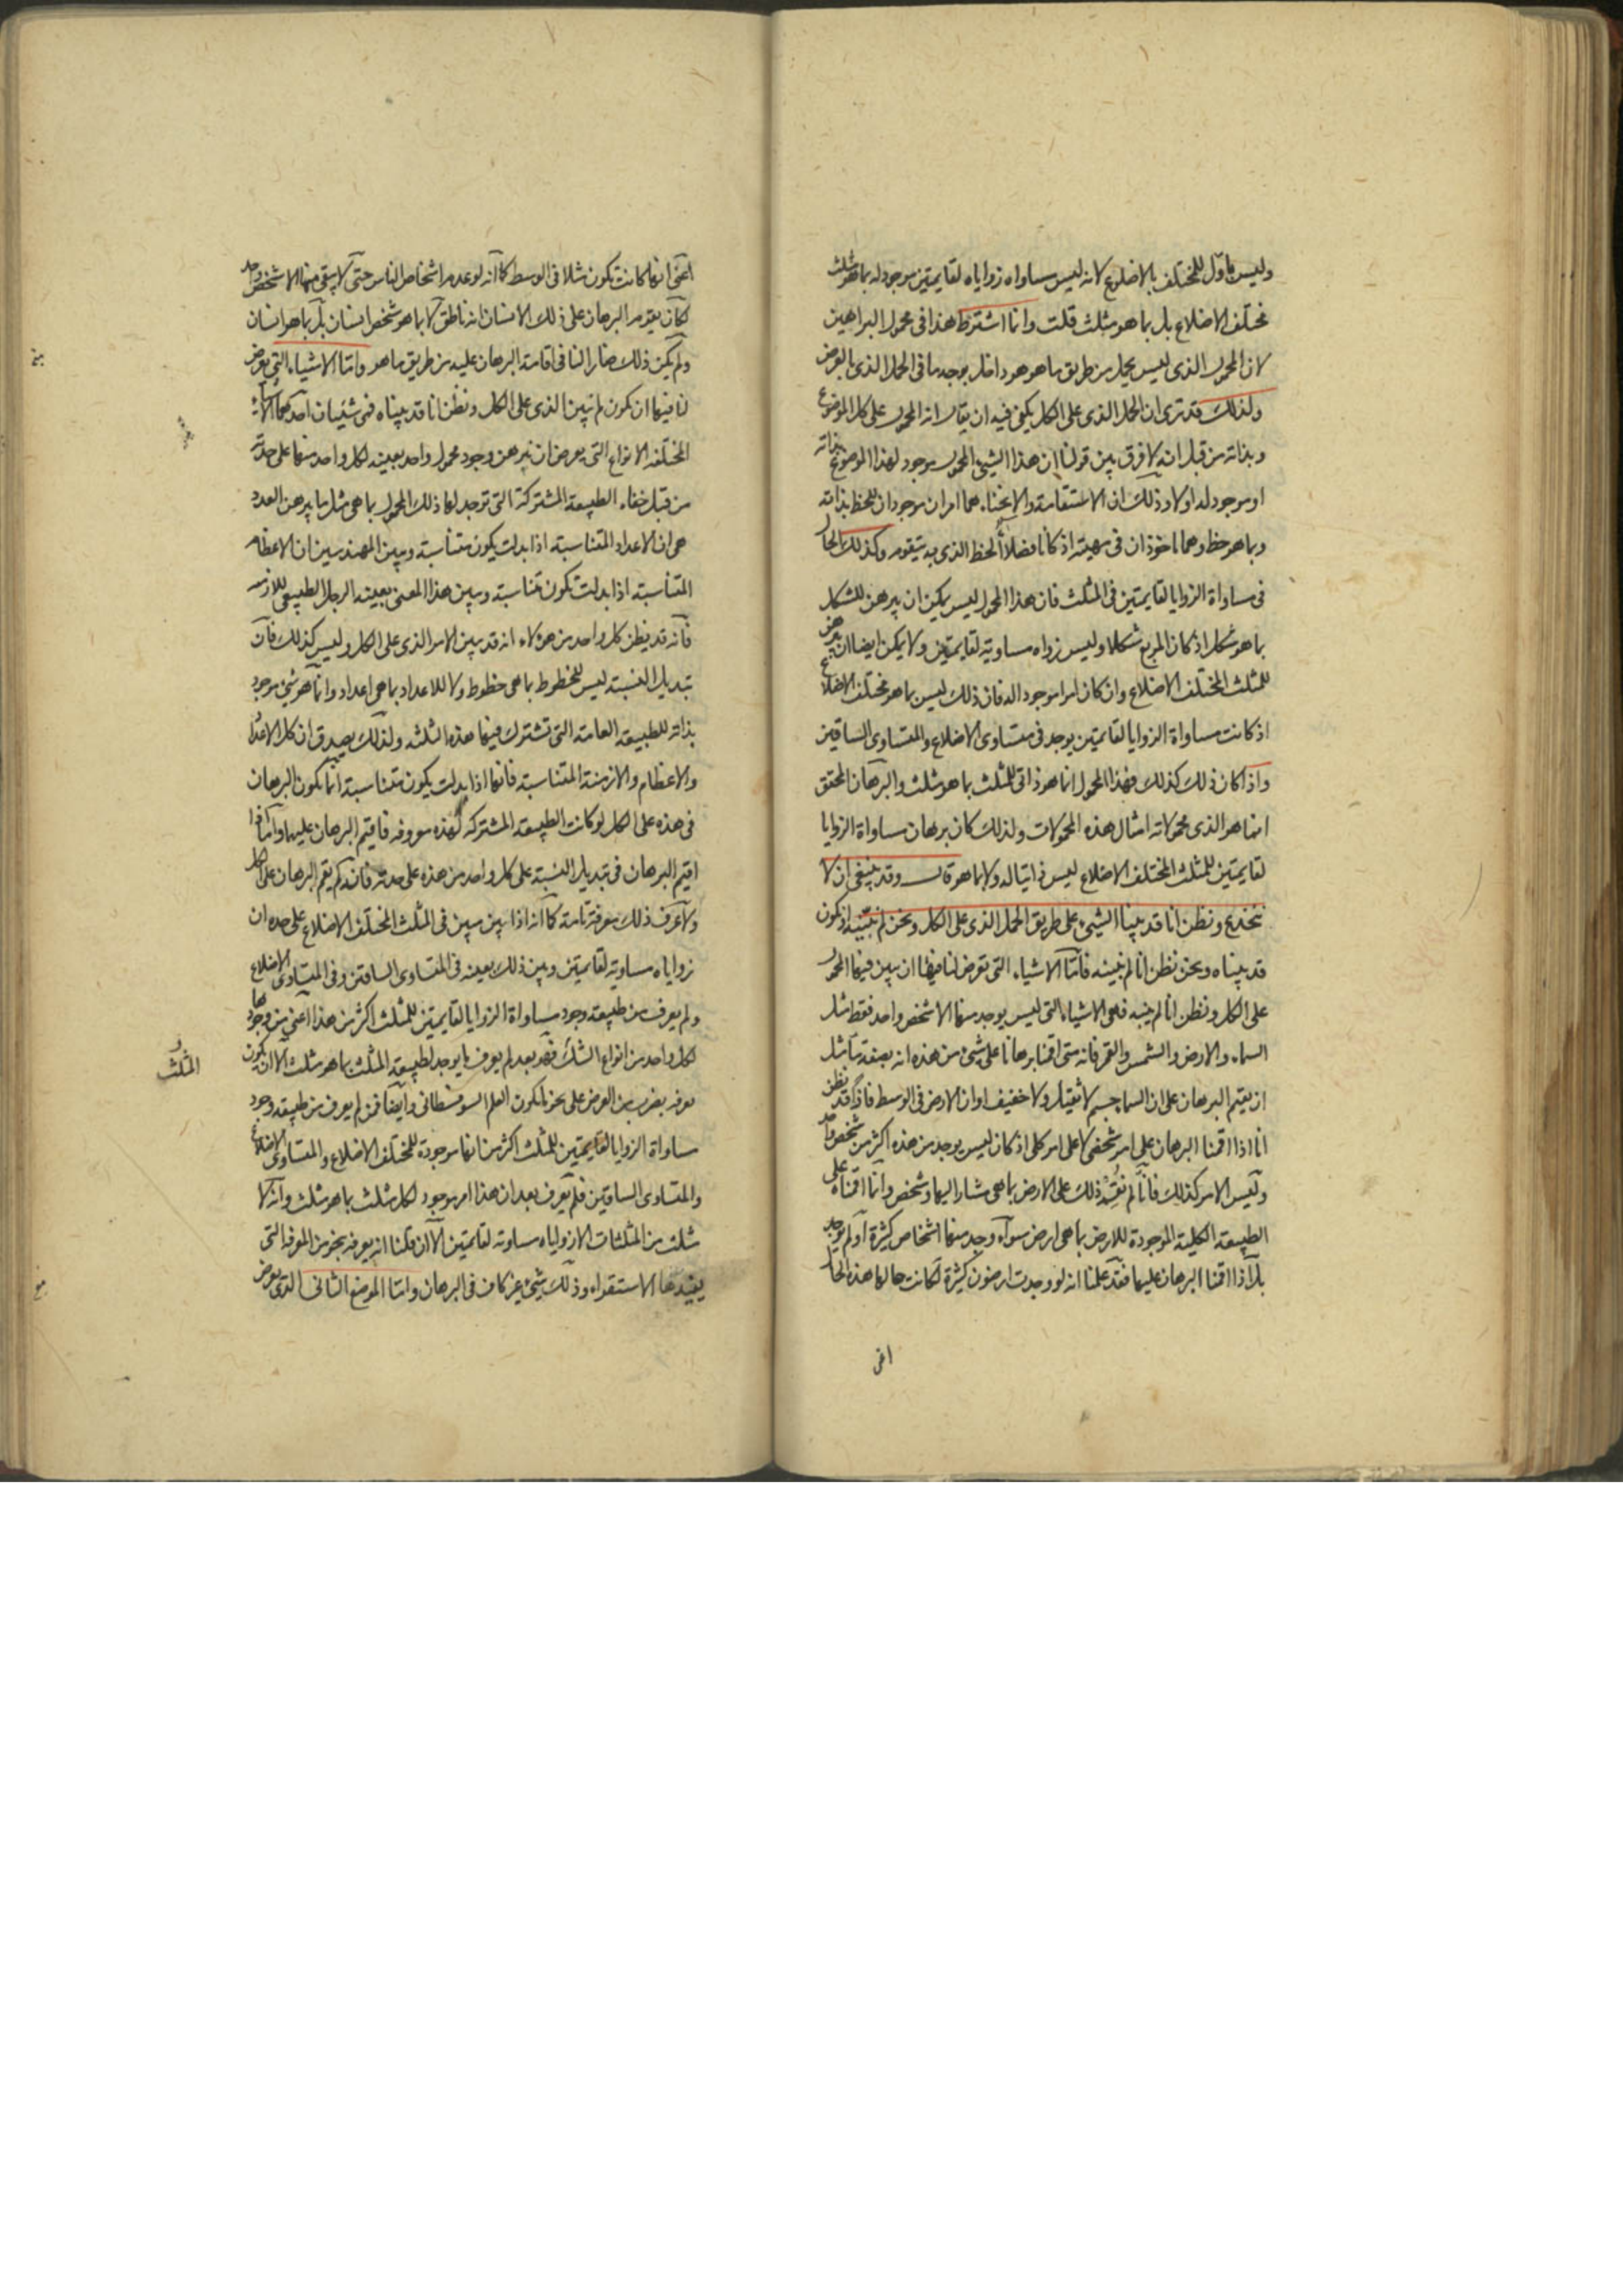 وليس باول للمختلف بالاضلاع لانه ليس مساواه زواياه لقايمتين موجود له بما هو مثلث
مختلف الاضلاع بل بما هو مثلث قلت وانما اشترط هذا في محمول البراهين
لان المحمول الذى ليس يحمل من طريق ما هو هو داخل بوجه ما في الحمل الذى بالعرض
ولذلك قد ترى ان الحمل الذى على الكل يكفى فيه ان يقال انه المحمول على كل الموضوع
وبذاته من قبل انه لا فرق بين قولنا ان هذا الشيئ المحمول موجود لهذا الموضوع بذاته
او موجود له اولا وذلك ان الاستقامة والانحناء هما امران موجودان للخط بذاته
وبما هو خط وهما ماخوذان في مهيته اذ كانا فصلا الخط الذى به يتقوم وكذلك الحال
في مساواة الزوايا لقايمتين في المثلث فان هذا المحمول ليس يمكن ان يبرهن للشكل
بما هو شكل اذ كان المربع شكلا وليس زواياه مساوية لقايمتين ولا يمكن ايضا ان يبرهن
للمثلث المختلف الاضلاع وان كان امرا موجودا له فان ذلك ليس بما هو مختلف الاضلاع
اذ كانت مساواة الزوايا لقايمتين يوجد في متساوى الاضلاع والمتساوى الساقين
واذا كان ذلك كذلك فهذا المحمول انما هو ذاتى للمثلث بما هو مثلث والبرهان المحقق
انما هو الذى محمولاته امثال هذه المحمولات ولذلك كان برهان مساواة الزوايا
لقايمتين للمثلث المختلف الاضلاع ليس ذاتيا له ولا بما هو قال وقد ينبغى ان لا
ننخدع ونظن انا قد بينا الشيئ على طريق الحمل الذى على الكل ونحن لم نبينه او نكون
قد بيناه ونحن نظن انا لم نبينه فاما الاشياء التى تعرض لنا فيها ان نبين فيها المحمول
على الكل ونظن انا لم نبينه فهى الاشياء التى ليس يوجد منها الا شخص واحد فقط مثل
السماء والارض والشمس والقمر فانه متى اقمنا برهانا على شيئ من هذه انه بصفة ما مثل
ان نقيم البرهان على ان السماء جسم لا ثقيل ولا خفيف او ان الارض في الوسط فانا قد نظن
انا اذا اقمنا البرهان على امر شخصى لا على امر كلى اذ كان ليس يوجد من هذه اكثر من شخص واحد
وليس الامر كذلك فانا لم نقم ذلك على الارض بما هى مشار اليها وشخص وانما اقمناه على
الطبيعة الكلية الموجودة للارض بما هى ارض سواء وجد منها اشخاص كثيرة او لم يوجد
بل اذا اقمنا البرهان عليها فقد علمنا انه لو وجدت ارضون كثيرة لكانت حالها هذه الحال
اعنى
اعنى انها كانت تكون مثلا في الوسط كما انه لو عدم اشخاص الناس حتى لا يبقى منها الا شخص واحد
لكان يقوم البرهان على ذلك الانسان انه ناطق لا بما هو شخص انسان بل بما هو انسان
ولم يكن ذلك ضارا لنا في اقامة البرهان عليه من طريق ما هو واما الاشياء التى يعرض
لنا فيها ان نكون لم نبين الذى على الكل ونظن انا قد بيناه فهى شيئان احدهما الاشياء
المختلفه الانواع التى يعرض ان نبرهن وجود محمول واحد بعينه لكل واحد منها على حدته
من قبل خفاء الطبيعة المشتركة التى توجد لها ذلك المحمول بما هى مثل ما يبرهن العدد
هى ان الاعداد المتناسبة اذا بدلت يكون متناسبة ويبين المهندسين ان الاعظام
المتناسبة اذا بدلت تكون متناسبة ويبين هذا المعنى بعينه الرجل الطبيعى للازمنه
فانه قد يظن كل واحد من هؤلاء انه قد بين الامر الذى على الكل وليس كذلك فان
تبديل النسبة ليس للخطوط بما هى خطوط ولا للاعداد بما هى اعداد وانما هو شئ موجود
بذاته للطبيعة العامة التى تشترك فيها هذه الثلثه ولذلك يصدق ان كل الاعداد
والاعظام والازمنة المتناسبة فانها اذا بدلت يكون متناسبة انما تكون البرهان
في هذه على الكل لو كانت الطبيعة المشتركة لهذه معروفه فاقيم البرهان عليها واما اذا
اقيم البرهان في تبديل النسبة على كل واحد من هذه على حدته فانه لم يقم البرهان على الكل
ولا عرف ذلك معرفة تامة كما انه اذا بين مبين في المثلث المختلف الاضلاع على حده ان
زواياه مساوية لقايمتين وبين ذلك بعينه في المتساوى الساقين وفى المتساوى الاضلاع
ولم يعرف من طبيعه وجود مساواة الزوايا لقايمتين للمثلث اكثر من هذا اعنى من وجودها
لكل واحد من انواع المثلث فهو بعد لم يعرف ما يوجد لطبيعة المثلث بما هو مثلث الا ان يكون
يعرفه بضرب من العرض على نحو ما يكون العلم السوفسطائى وايضا فمن لم يعرف من طبيعه وجود
مساواة الزوايا لقايمتين للمثلث اكثر من انها موجودة للمختلف الاضلاع والمتساوى الاضلاع
والمتساوى الساقين فلم يعرف بعد ان هذا امر موجود لكل مثلث بما هو مثلث وانه لا
مثلث من المثلثات الا زواياه مساوية لقايمتين الا ان قلنا انه يعرفه بنحو من المعرفه التى
يفيدها الاستقراء وذلك شيئ غير كاف في البرهان واما الموضع الثانى الذى يعرض
المثلث